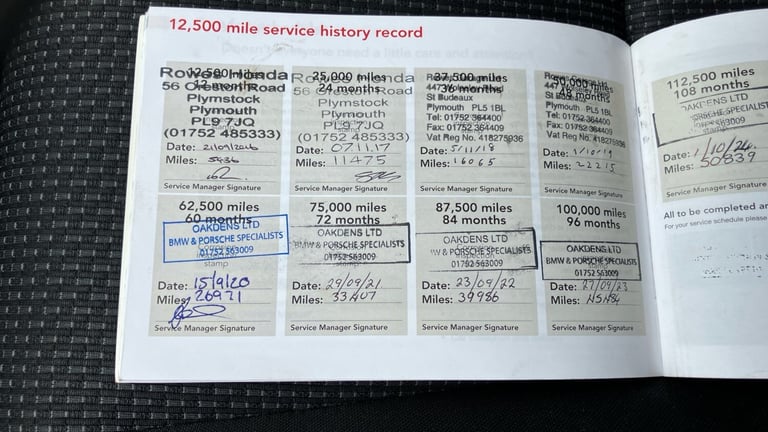 12,500 mile service history record
12,500 miles
12 months
Rowes Honda
56 Oreston Road
Plymstock
Plymouth
PL9 7JQ
(01752 485333)
Date:
Miles: 5936
Service Manager Signature
25,000 miles
24 months
Plymstock
Plymouth
PL9 7JQ
(01752 485333)
Date: 07.11.17
Miles: 11475
Service Manager Signature
37,500 miles
36 months
St Budeaux
Plymouth PL5 1BL
Tel: 01752 364400
Fax: 01752 364409
Vat Reg No. 418275936
Date: 5/11/18
Miles: 16065
Service Manager Signature
50,000 miles
48 months
St Budeaux
Plymouth PL5 1BL
Tel: 01752 364400
Fax: 01752 364409
Vat Reg No. 418275936
Date: 1/10/19
Miles: 22215
Service Manager Signature
62,500 miles
60 months
OAKDENS LTD
BMW & PORSCHE SPECIALISTS
01752 563009
stamp
Date: 15/9/20
Miles: 26971
Service Manager Signature
75,000 miles
72 months
OAKDENS LTD
BMW & PORSCHE SPECIALISTS
01752 563009
Date: 29/09/21
Miles: 33407
Service Manager Signature
87,500 miles
84 months
OAKDENS LTD
& PORSCHE SPECIALISTS
01752 563009
Date: 23/09/22
Miles: 39986
Service Manager Signature
100,000 miles
96 months
OAKDENS LTD
BMW & PORSCHE SPECIALISTS
01752 563009
Date: 27/09/23
Miles:
Service Manager Signature
112,500 miles
108 months
OAKDENS LTD
PORSCHE SPECIALIS
563009
Date: 1/10/24
Miles: 50839
Service Manager Signature
All to be completed ar
For your service schedule please